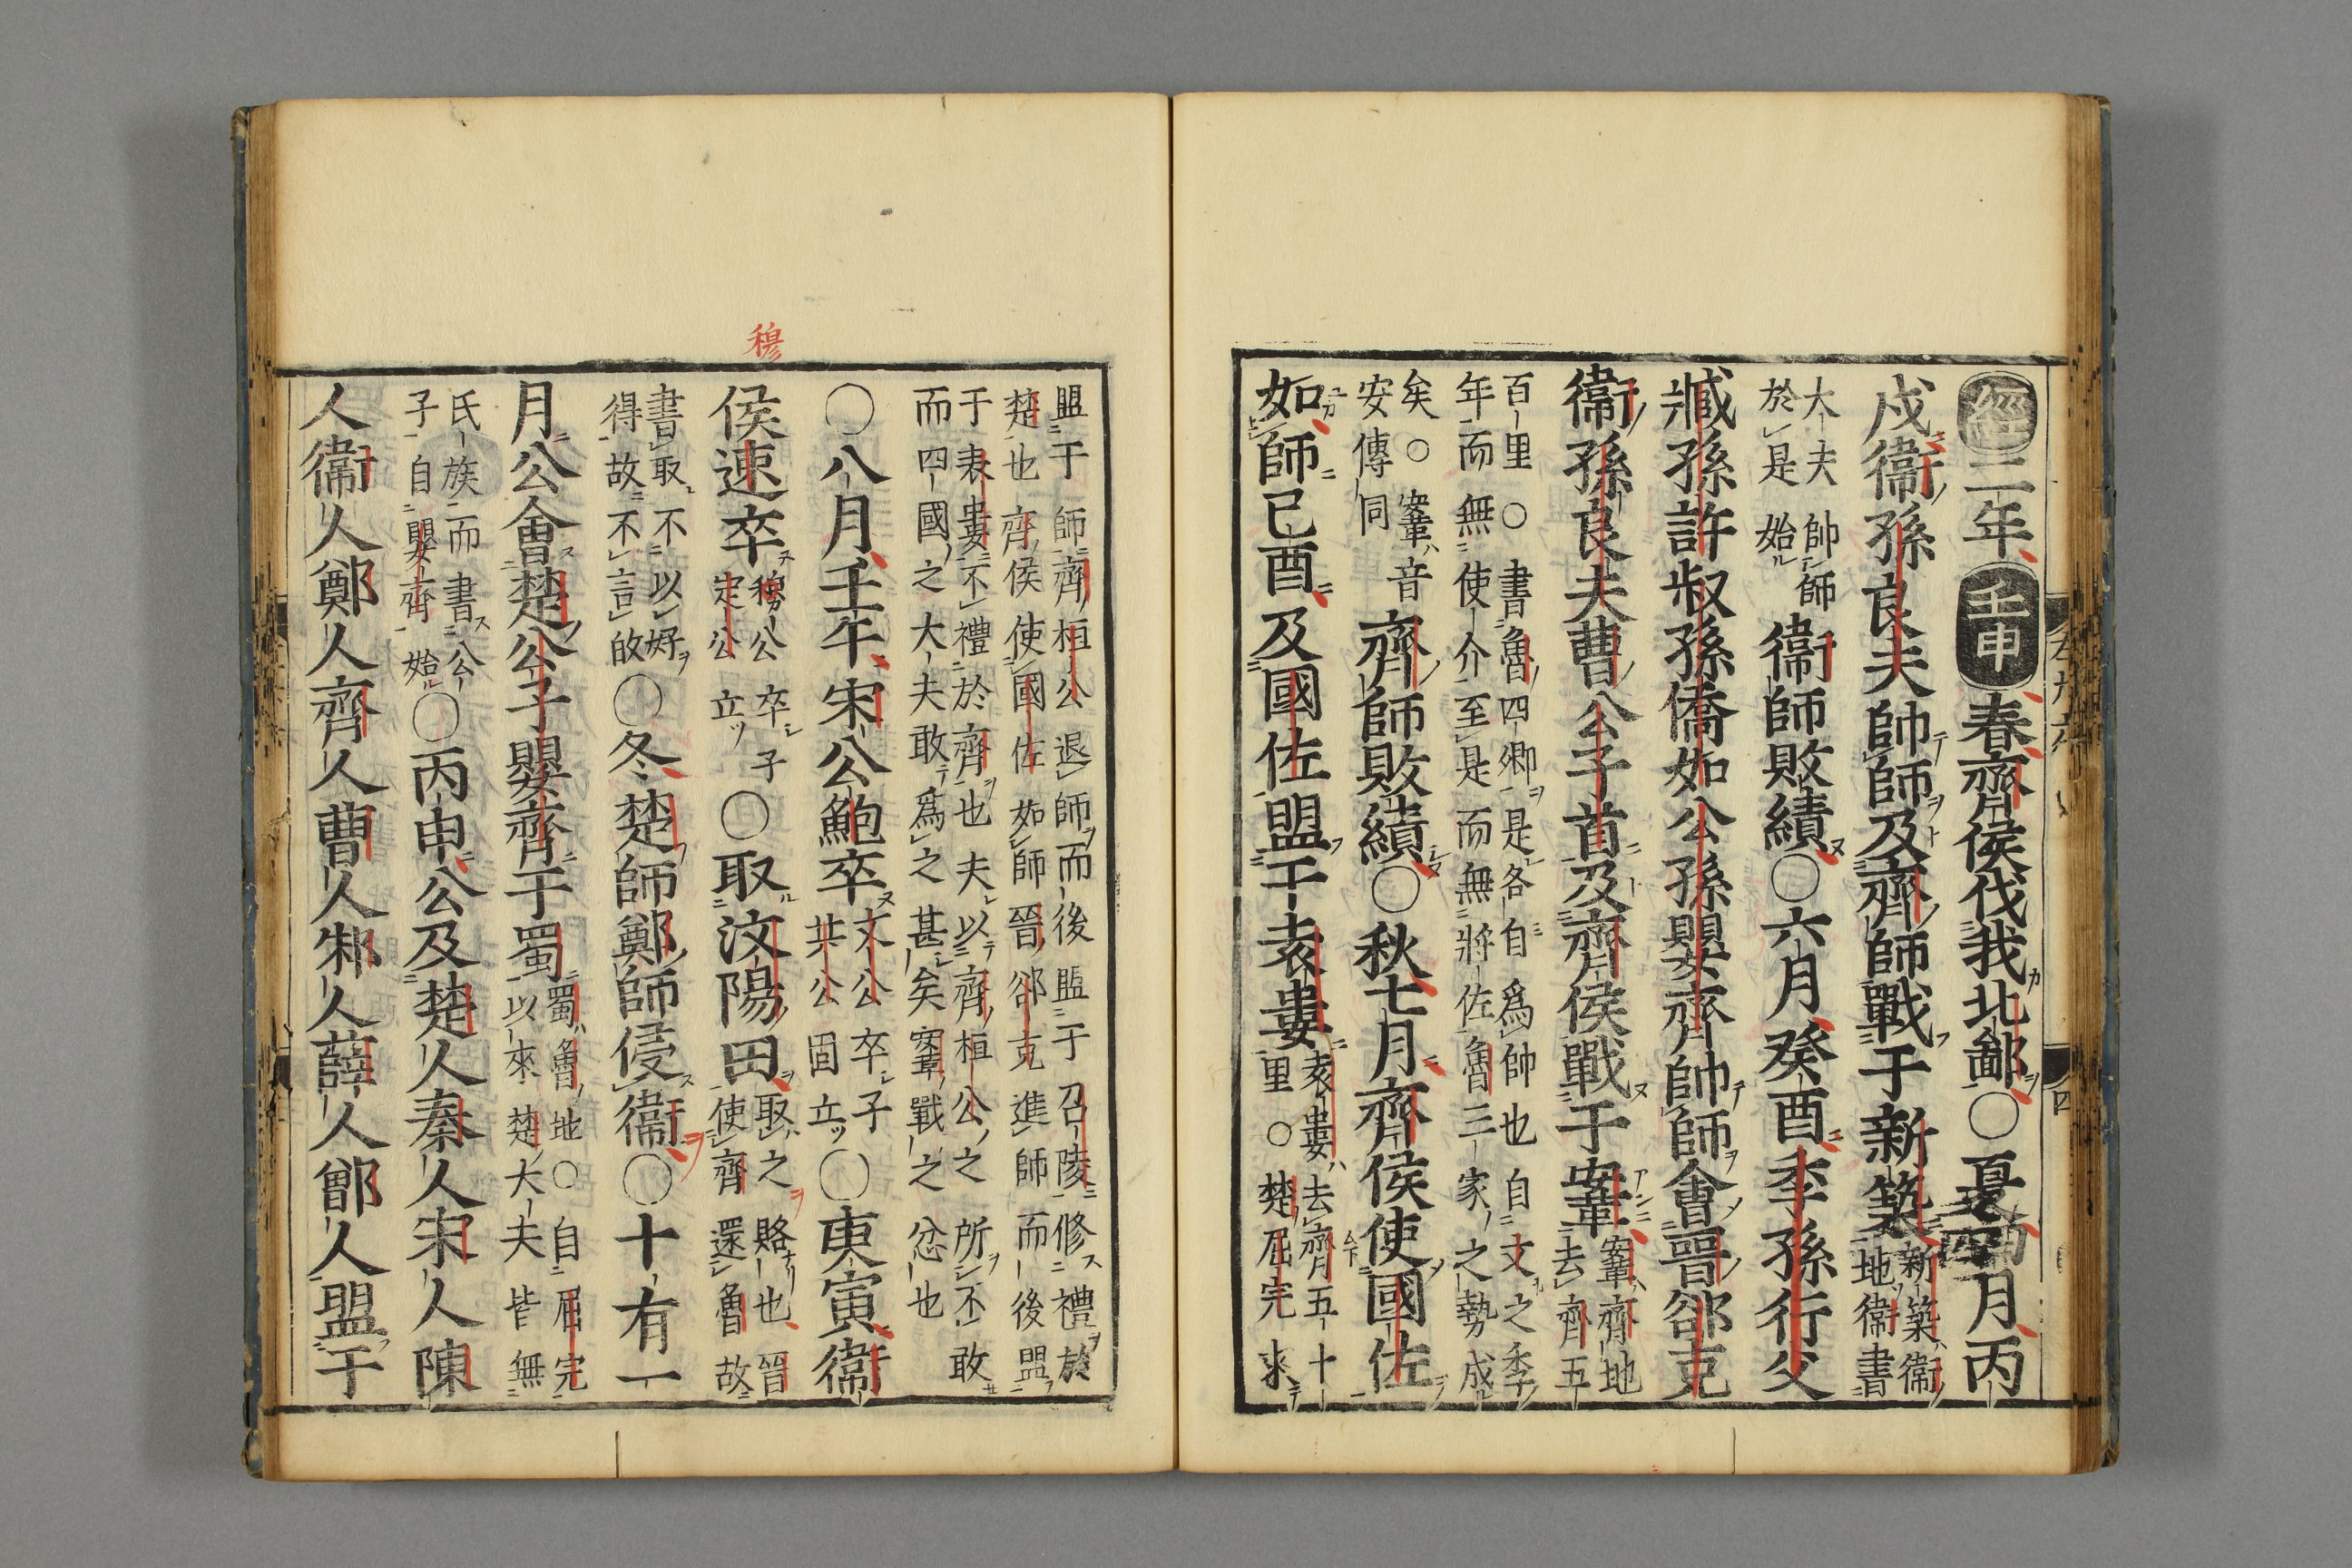 經二年壬申春齊侯伐我北鄙○夏四月丙
戍衞孫良夫帥師及齊師戰于新築新築衞地衞書
大夫帥師於是始衞師敗績○六月癸酉季孫行父
臧孫許叔孫僑如公孫嬰齊帥師會晉郤克
衞孫良夫曹公子首及齊侯戰于鞌鞌齊地去齊五
百里○書魯四卿是各自爲帥也自文之季
年而無使介至是而無將佐魯三家之勢成
矣○鞌音安傳同齊師敗績○秋七月齊侯使國佐
如師己酉及國佐盟于袁婁袁婁去齊五十里○楚屈完來
穆
盟于師齊桓公退師而後盟于召陵修禮於
楚也齊侯使國佐如師晉郤克進師而後盟
于袁婁不禮於齊也夫以齊桓公之所不敢
而四國之大夫敢爲之甚矣鞌戰之忿也
○八月壬午宋公鮑卒文公卒子共公固立○庚寅衞
侯速卒穆公卒子定公立○取汶陽田取之賂也晉使齊還魯故
書取不以好得故不言○冬楚師鄭師侵衞○十有一
月公會楚公子嬰齊于蜀蜀魯地○自屈完以來楚大夫皆無
氏族而書公子自嬰齊始○丙申公及楚人秦人宋人陳
人衞人鄭人齊人曹人邾人薛人鄫人盟于